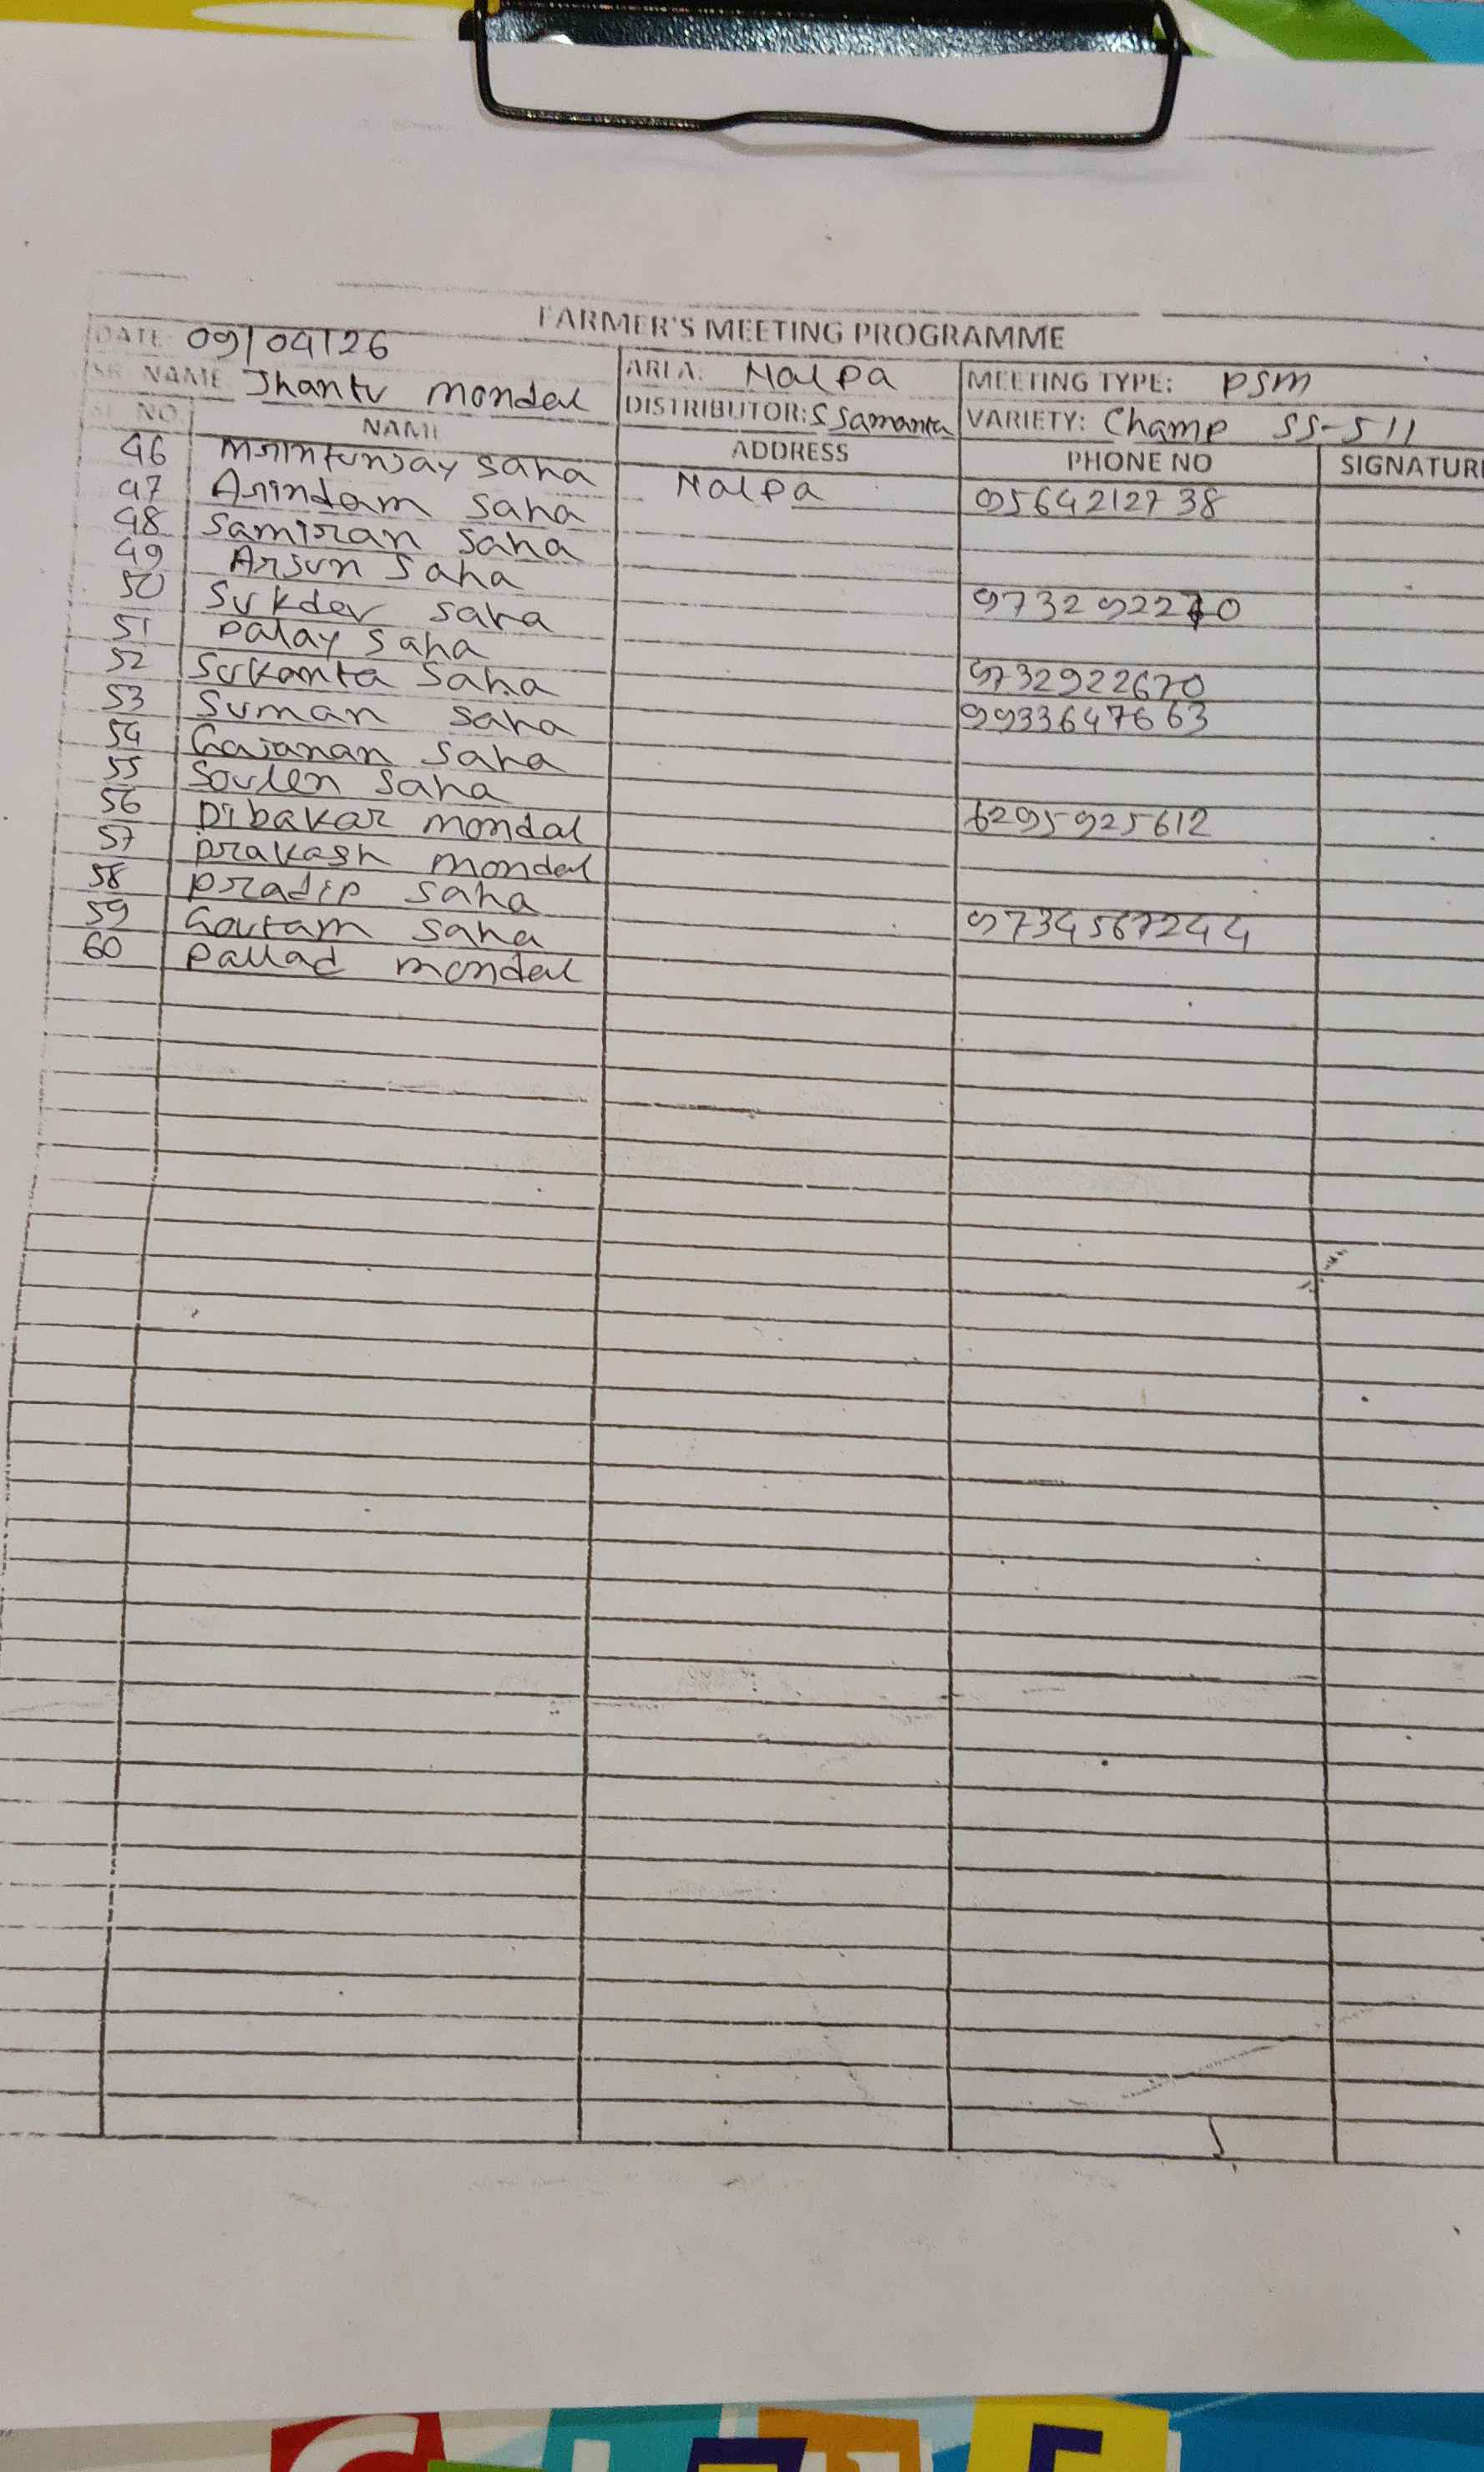 FARMER'S MEETING PROGRAMME
DATE: 09/04/26 AREA: Malpa MEETING TYPE: PSM
SR. NAME Jhantu mondal DISTRIBUTOR: S Samanta VARIETY: Champ SS-511
SL NO. NAME ADDRESS PHONE NO SIGNATURE
46 Mrintunjay saha Malpa 9564212738
47 Arindam saha
48 Samiran saha
49 Arjun Saha 973292270
50 Sukdev saha
51 Palay Saha 9732922670
52 Sukanta Saha 9933647663
53 Suman saha
54 Gajanan saha
55 Soulen saha 6295925612
56 Dibakar mondal
57 Prakash mondal
58 Pradip saha 9734567244
59 Goutam saha
60 Pallad mondal